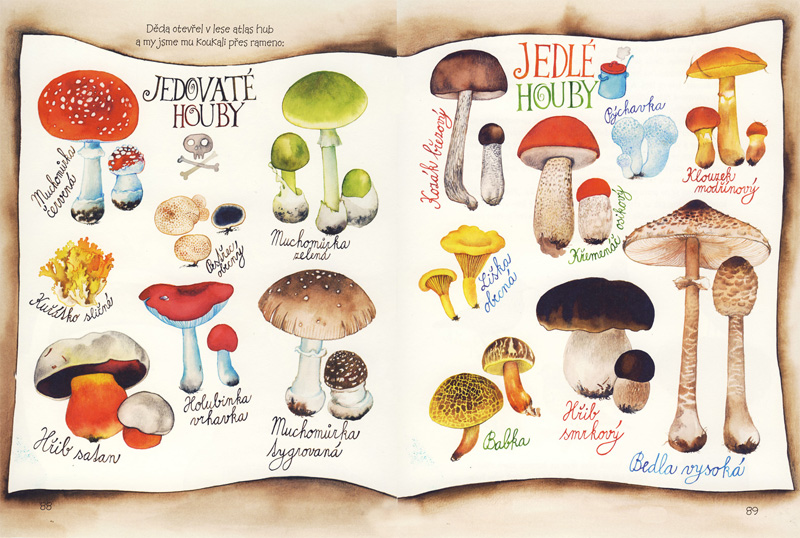 Děda otevřel v lese atlas hub
a my jsme mu koukali přes rameno:
JEDOVATÉ
HOUBY
Muchomůrka
červená
Muchomůrka
zelená
Pestřec
obecný
Kuřátko sličné
Holubinka
vrhavka
Hřib satan
Muchomůrka
tygrovaná
88
JEDLÉ
HOUBY
Kozák březový
Pýchavka
Klouzek
modřínový
Křemenáč osikový
Liška
obecná
Babka
Hřib
smrkový
Bedla vysoká
89